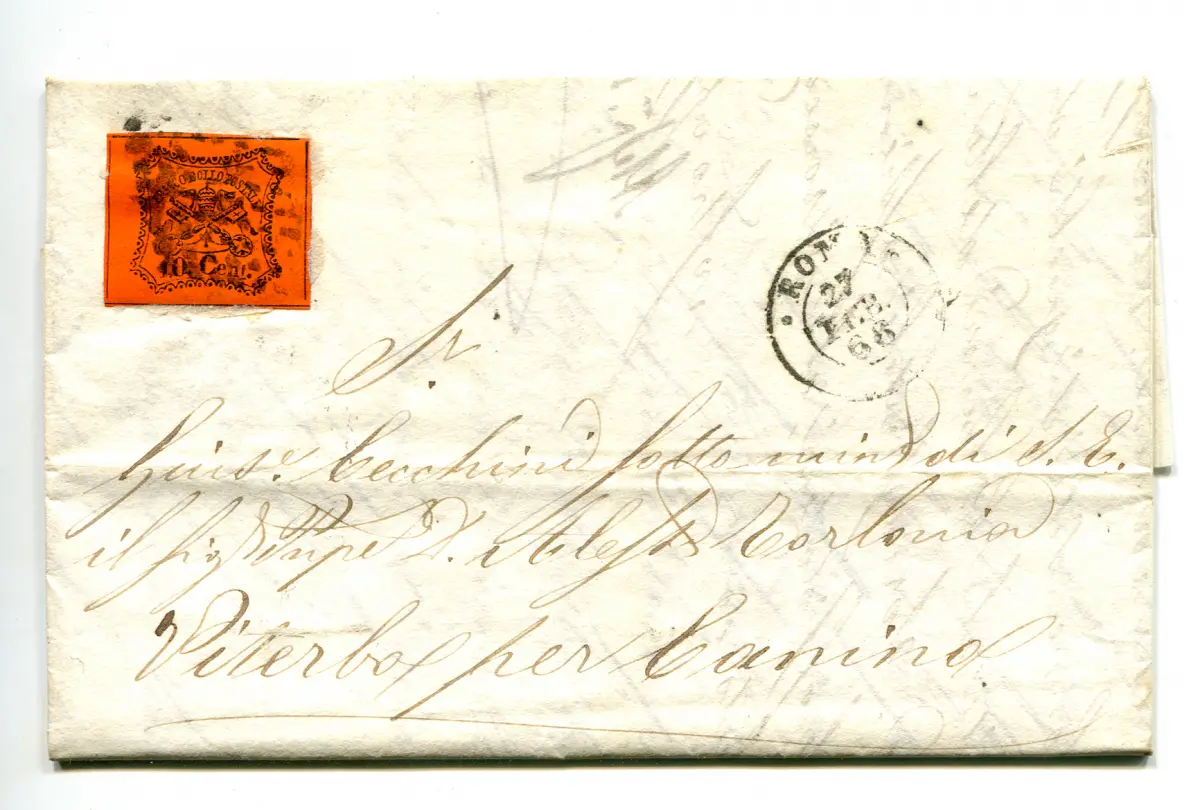 FRANCO BOLLO POSTALE
10 Cent.
ROMA
27
FEB.
68
Sr.
Gius.e Cecchini sotto mino di S. E.
il sig D. Aless Torlonia
Viterbo per Canino